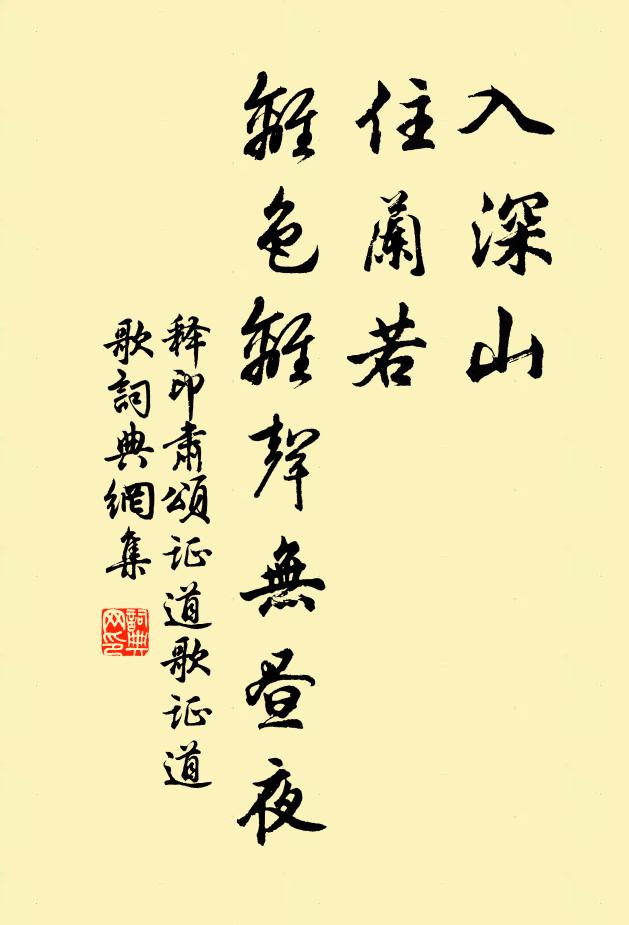 入深山
住蘭若
離色離聲無昼夜
释印肃頌证道歌证道
歌詞典網集
詞典
网印